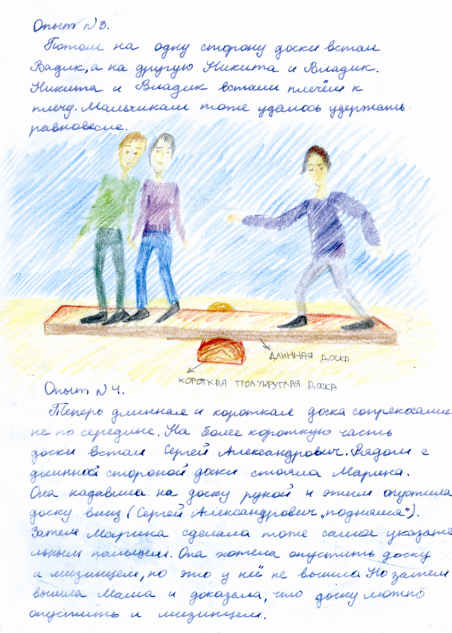 Опыт №3.
Потом на одну сторону доски встал
Вадик, а на другую Никита и Владик.
Никита и Владик встали плечём к
плечу. Мальчикам тоже удалось удержать
равновесие.
ДЛИННАЯ ДОСКА
КОРОТКАЯ ПОЛУКРУГЛАЯ ДОСКА
Опыт №4.
Теперь длинная и короткая доска сопрекосались
не по середине. На более короткую часть
доски встал Сергей Александрович. Рядом с
длинной стороной доски стояла Марина.
Она надавила на доску рукой и этим опустила
доску вниз (Сергей Александрович „поднялся").
Затем Марина сделала тоже самое указате
льным пальцем. Она хотела опустить доску
и мизинцем, но это у неё не вышло. Но затем
вышла Мама и доказала, что доску можно
опустить и мизинцем.